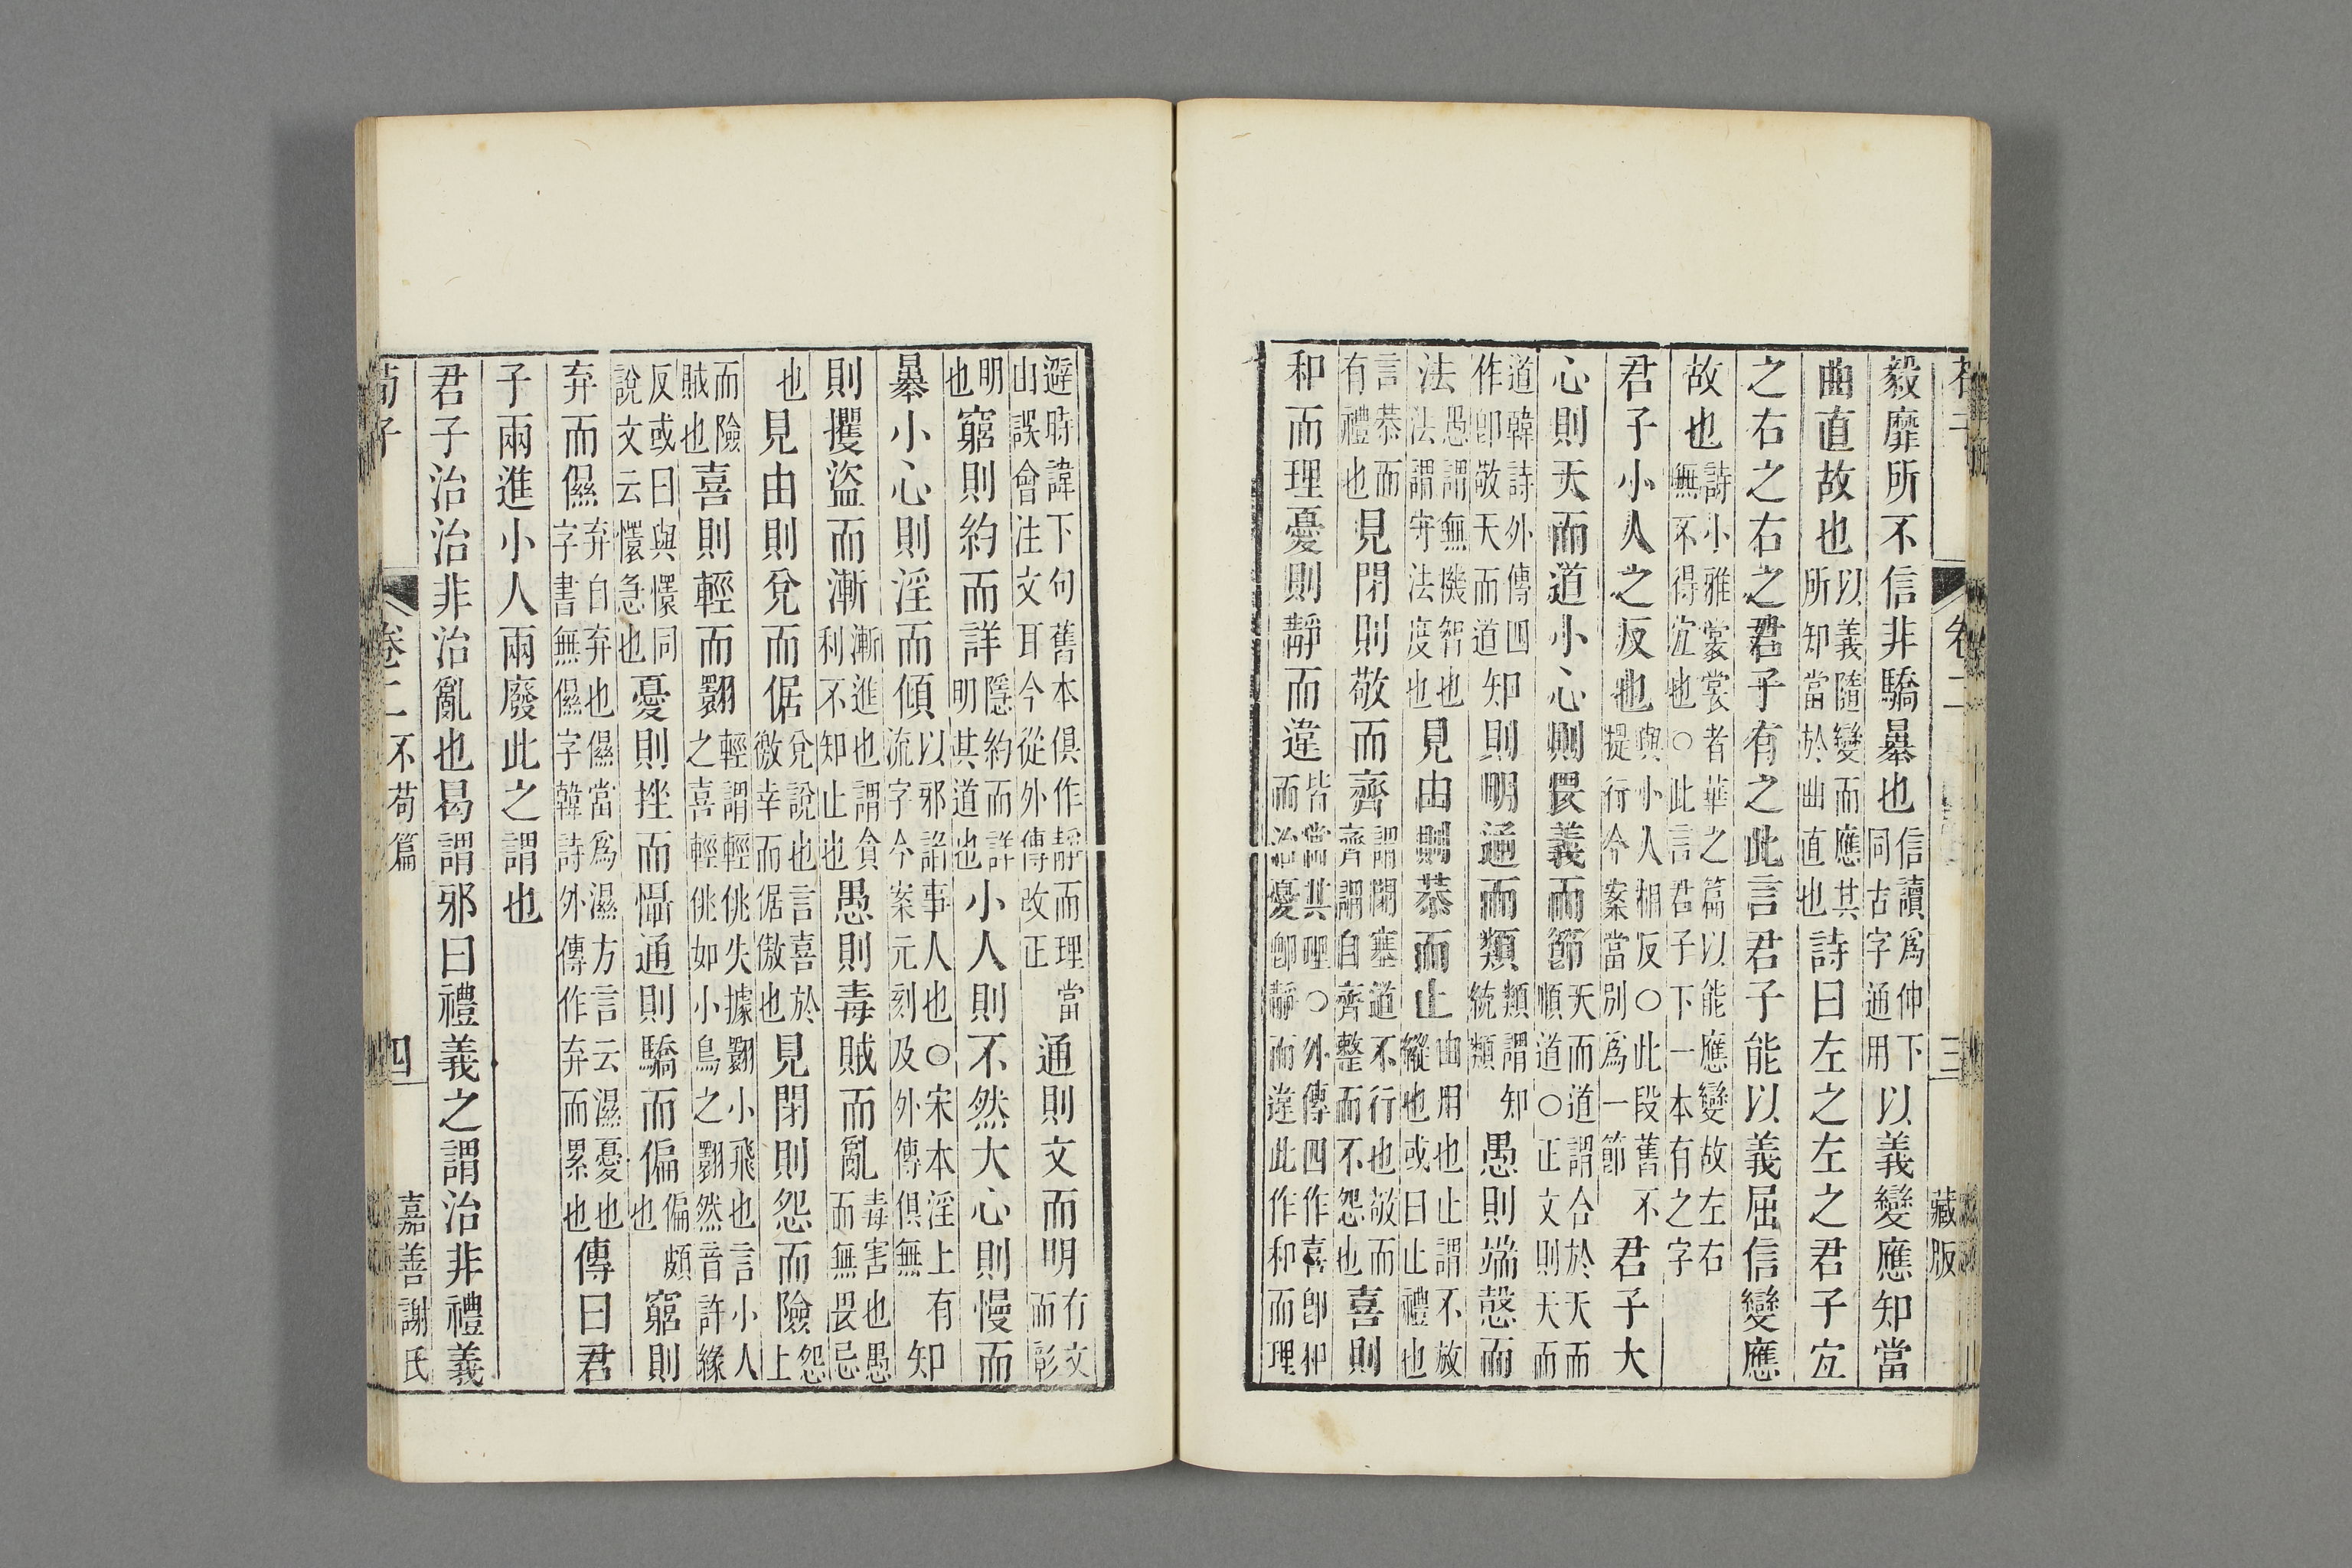 卷二 三 藏版
毅靡所不信非驕暴也信讀爲伸下同古字通用以義變應知當
曲直故也以義隨變而應其所知當於曲直也詩曰左之左之君子宜
之右之右之君子有之此言君子能以義屈信變應
故也詩小雅裳裳者華之篇以能應變故左右無不得宜也○此言君子下一本有之字
君子小人之反也與小人相反○此段舊不提行今案當別爲一節君子大
心則天而道小心則畏義而節天而道謂合於天而順道○正文則天而
道韓詩外傳四作卽敬天而道知則明通而類類謂知統類愚則端慤而
法愚謂無機智也法謂守法度也見由則恭而止由用也止謂不放縱也或曰止禮也
言恭而有禮也見閉則敬而齊謂閉塞道不行也敬而齊謂自齊整而不怨也喜則
和而理憂則靜而違皆當其理○外傳四作喜卽和而治憂卽靜而違此作和而理
避時諱下句舊本俱作靜而理當由誤會注文耳今從外傳改正通則文而明有文而彰
明也窮則約而詳隱約而詳明其道也小人則不然大心則慢而
暴小心則淫而傾以邪諂事人也○宋本淫上有流字今案元刻及外傳俱無知
則攫盜而漸漸進也謂貪利不知止也愚則毒賊而亂毒害也愚而無畏忌
也見由則兌而倨兌說也言喜於徼幸而倨傲也見閉則怨而險怨上
而險賊也喜則輕而翾輕謂輕佻失據翾小飛也言小人之喜輕佻如小鳥之翾然音許緣
反或曰與懁同說文云懁急也憂則挫而懾通則驕而偏偏頗也窮則
弃而儑弃自弃也儑當爲濕方言云濕憂也字書無儑字韓詩外傳作弃而累也傳曰君
子兩進小人兩廢此之謂也
君子治治非治亂也曷謂邪曰禮義之謂治非禮義
荀子 卷二 不苟篇 四 嘉善謝氏